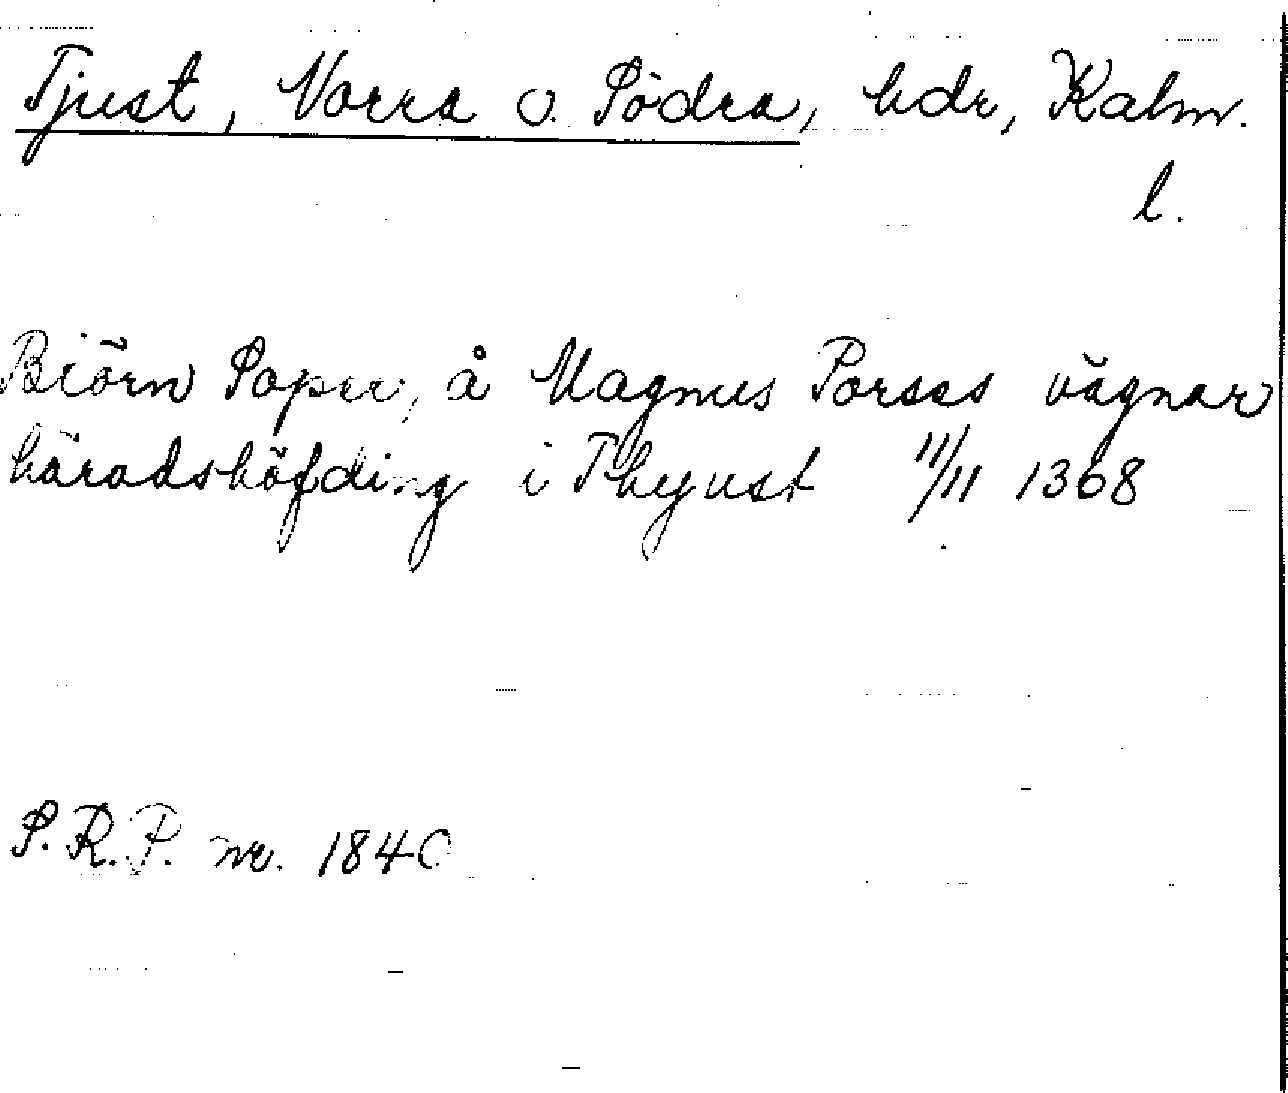 Tjust, Norra o. Södra, hdr, Kalm.
l.
Biörn Soper, å Magnus Porses vägnar
häradshöfding i Thyust 11/11 1368
S.R.P. nr. 1840